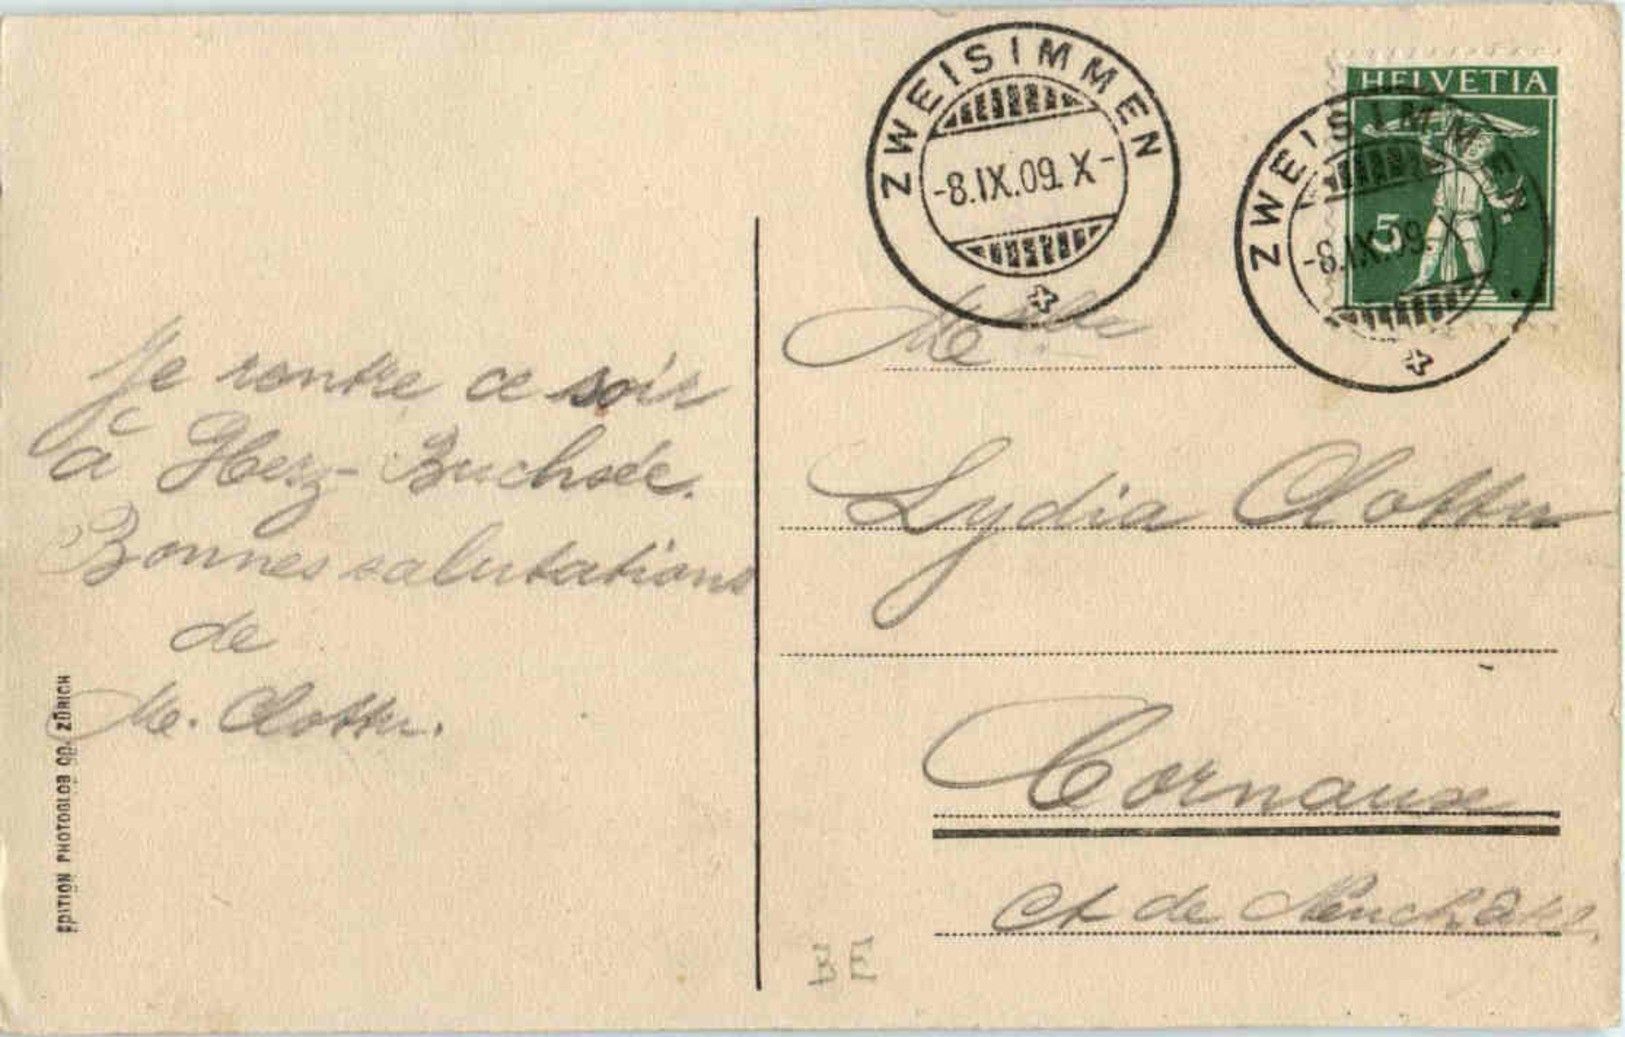 ZWEISIMMEN
-8.IX.09. X-
HELVETIA
5
ZWEISIMMEN
-8.IX.09. X
Je rentre ce soir
à Herz-Buchsée.
Bonnes salutations
de
M. Clottu.
EDITION PHOTOGLOB CO. ZÜRICH
Mlle
Lydia Clottu
Cornaux
Ct de Neuchâtel.
BE